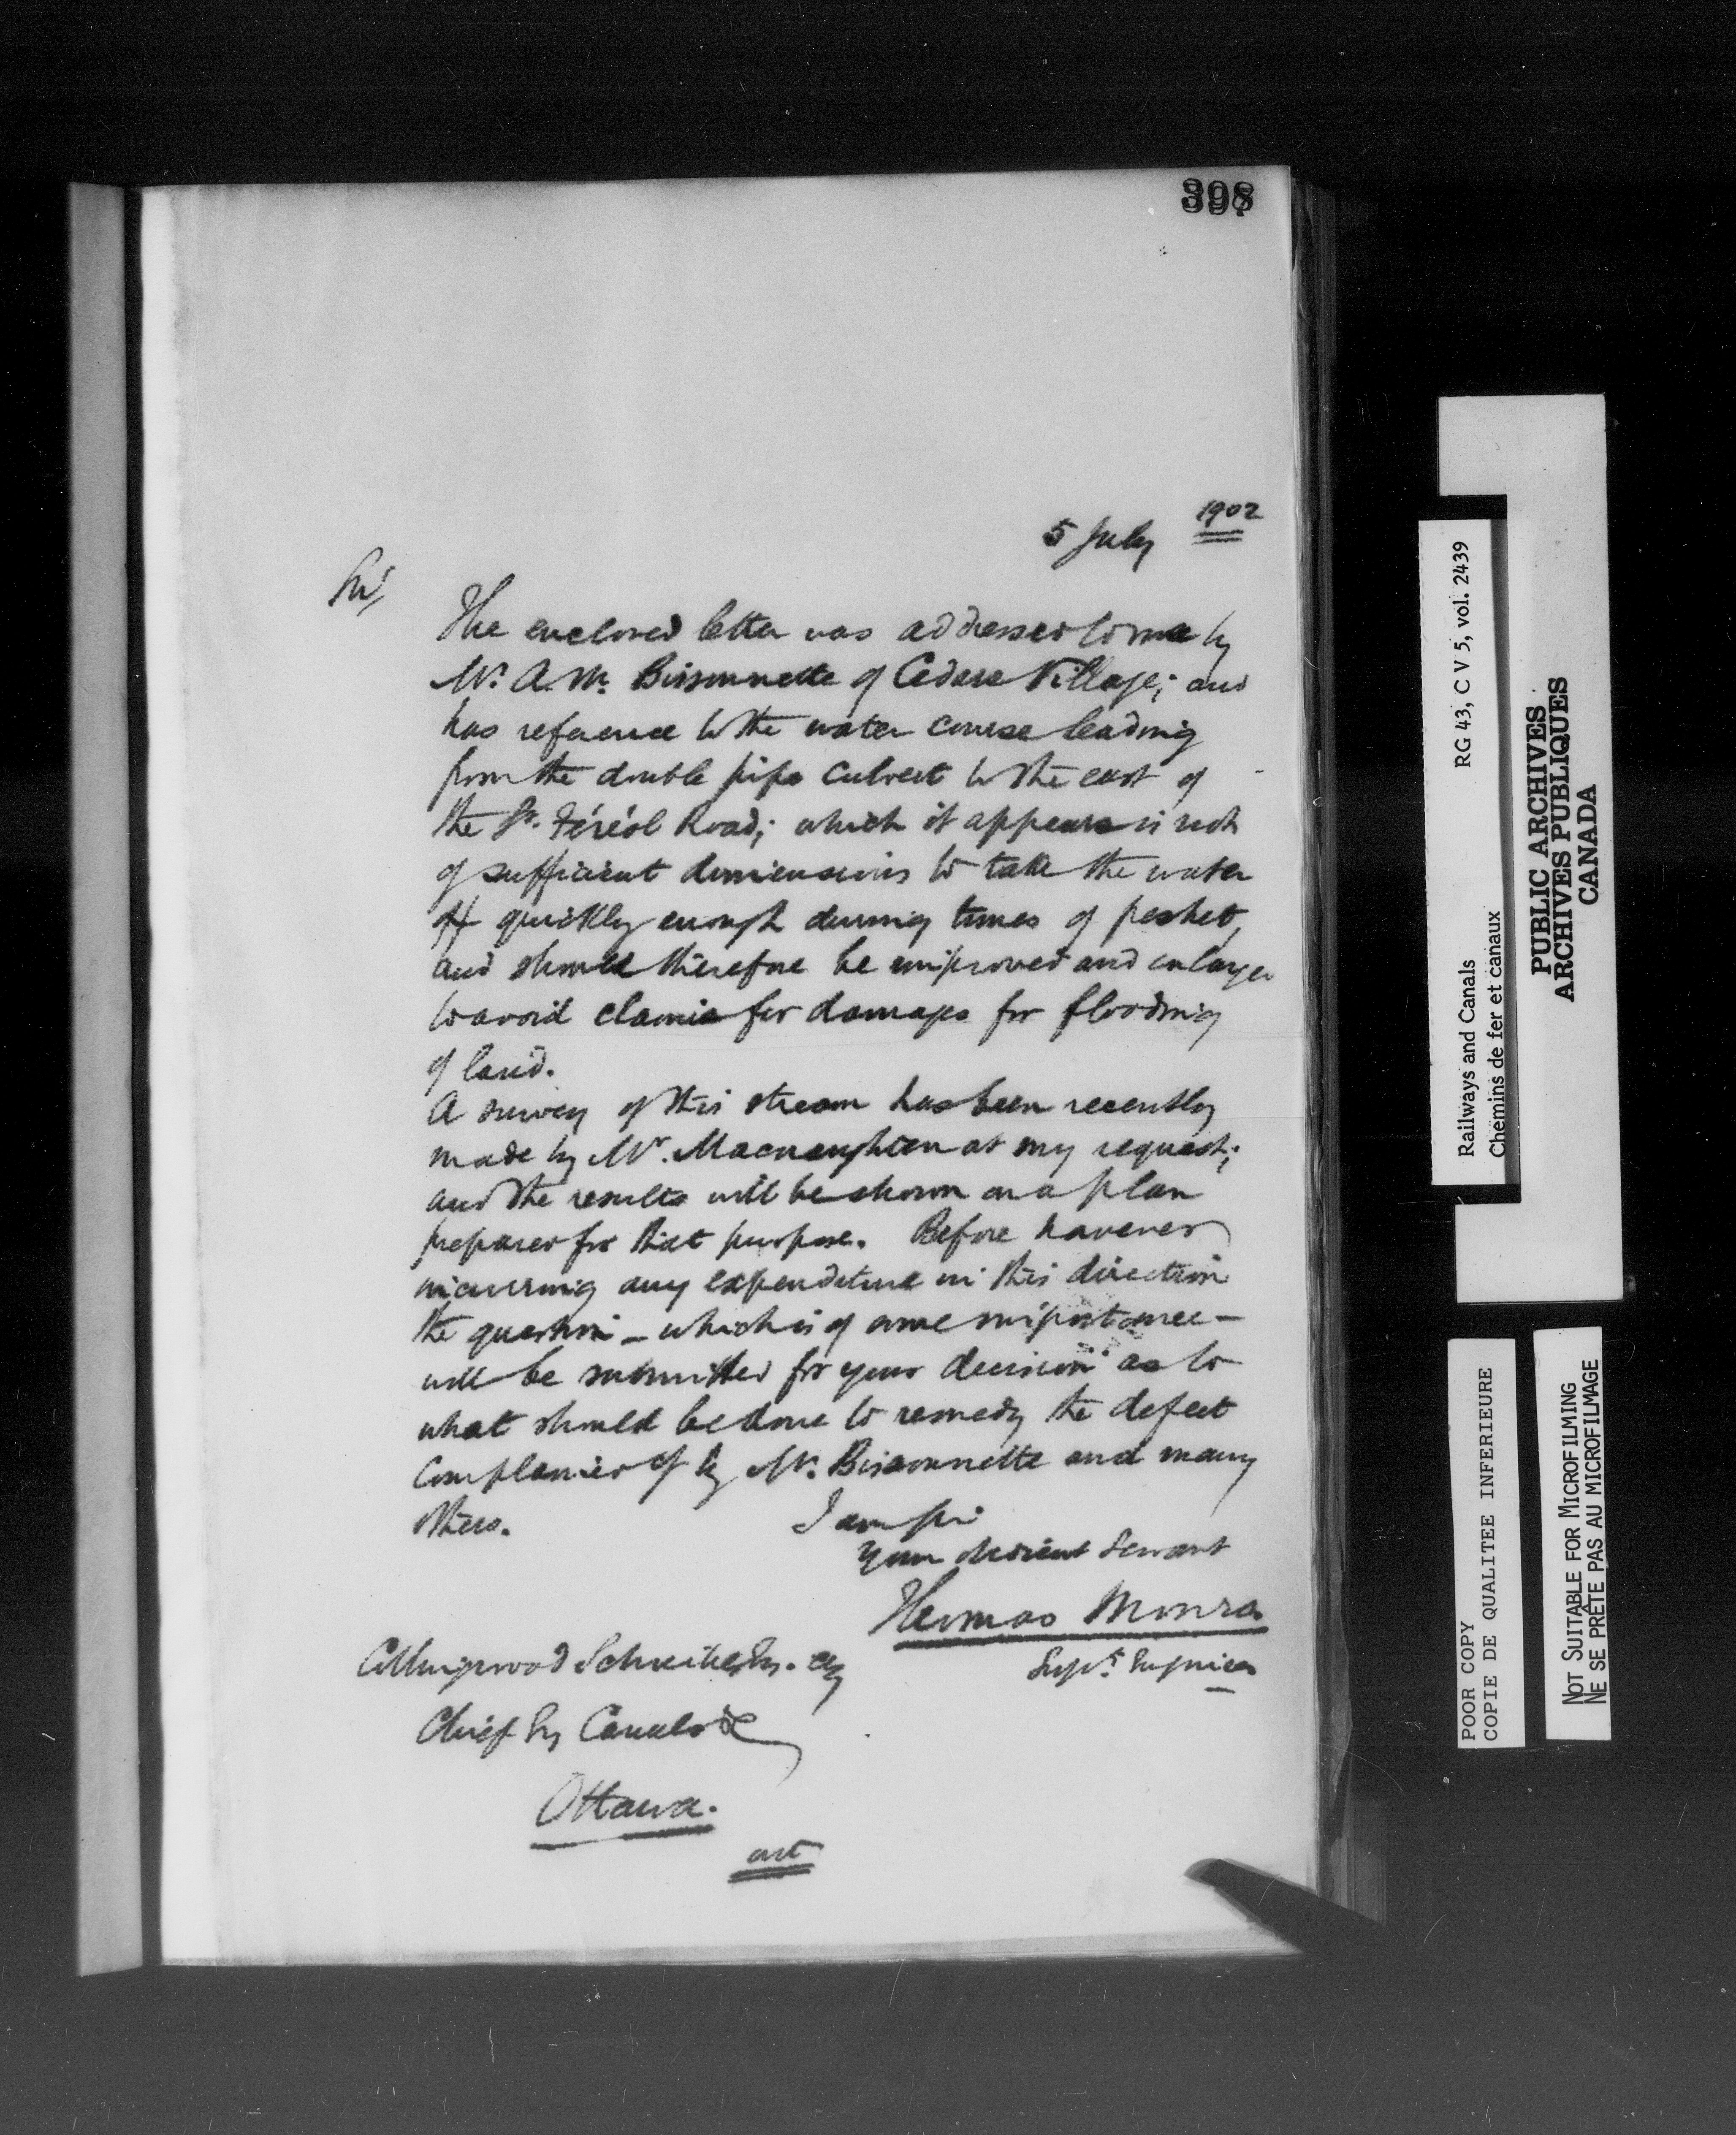 398
5 July 1902
Sir,
The enclosed letter was addressed to me by
Mr. A. M. Bissonnette of Cedars Village; and
has reference to the water course leading
from the double pipe culvert to the east of
the St. Féréol Road; which it appears is not
of sufficient dimensions to take the water
off quickly enough during times of freshet,
and should therefore be improved and enlarged
to avoid claims for damages for flooding
of land.
A survey of this stream has been recently
made by Mr. Macnaughton at my request;
and the results will be shown on a plan
prepared for that purpose. Before however
incurring any expenditure in this direction
the question – which is of some importance –
will be submitted for your decision as to
what should be done to remedy the defect
complained of by Mr. Bissonnette and many
others.
I am Sir
Your obedient Servant
Thomas Monro
Supt. Engineer
Collingwood Schreiber Esq.
Chief Eng Canals &c
Ottawa.
Railways and Canals RG 43, C V 5, vol. 2439
Chemins de fer et canaux
PUBLIC ARCHIVES
ARCHIVES PUBLIQUES
CANADA
POOR COPY
COPIE DE QUALITEE INFERIEURE
NOT SUITABLE FOR MICROFILMING
NE SE PRÊTE PAS AU MICROFILMAGE